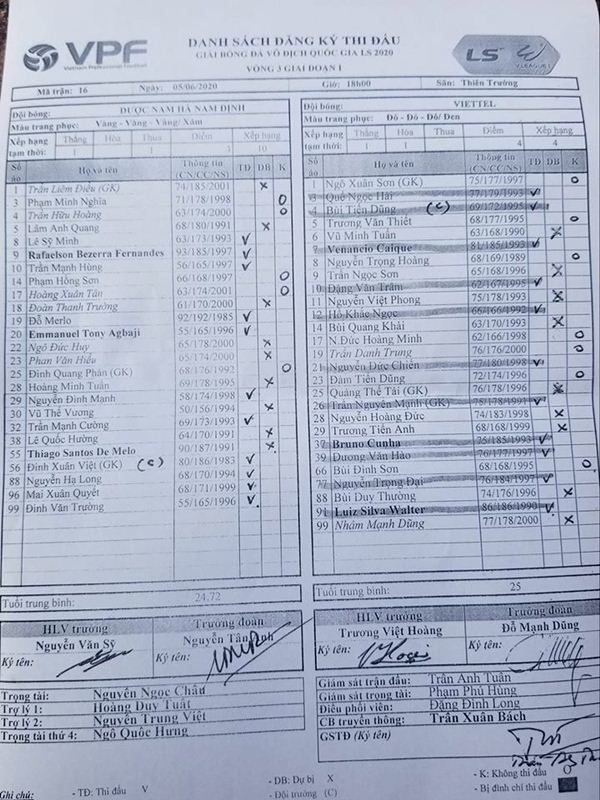 VPF
Vietnam Professional Football
DANH SÁCH ĐĂNG KÝ THI ĐẤU
GIẢI BÓNG ĐÁ VÔ ĐỊCH QUỐC GIA LS 2020
VÒNG 3 GIAI ĐOẠN 1
LS
V.LEAGUE 1
Mã trận: 16 Ngày: 05/06/2020 Giờ: 18h00 Sân: Thiên Trường
Đội bóng: DƯỢC NAM HÀ NAM ĐỊNH
Màu trang phục: Vàng - Vàng - Vàng/ Xám
Xếp hạng tạm thời: Thắng 1 Hòa Thua Điểm 3 Xếp hạng 10
Số áo Họ và tên Thông tin (CN/CC/NS) TĐ DB K
1 Trần Liêm Điều (GK) 74/185/2001 X
3 Phạm Minh Nghĩa 71/178/1998 O
4 Trần Hữu Hoàng 63/174/2000 O
5 Lâm Anh Quang 68/180/1991 X
8 Lê Sỹ Minh 63/173/1993 V
9 Rafaelson Bezerra Fernandes 93/185/1997 V
10 Trần Mạnh Hùng 56/165/1997 V
14 Phạm Hồng Sơn 66/168/1997 O
17 Hoàng Xuân Tân 63/174/2001 O
18 Đoàn Thanh Trường 61/170/2000 X
19 Đỗ Merlo 92/192/1985 V
20 Emmanuel Tony Agbaji 55/165/1996 V
22 Ngô Đức Huy 65/178/2000 X
23 Phan Văn Hiếu 65/174/2000 X
25 Đinh Quang Phán (GK) 68/176/1992 O
28 Hoàng Minh Tuấn 69/178/1995 X
29 Nguyễn Đình Mạnh 58/174/1998 V
30 Vũ Thế Vương 50/156/1994 X
32 Trần Mạnh Cường 69/173/1993 V
38 Lê Quốc Hường 64/170/1991 X
55 Thiago Santos De Melo 90/187/1991 X
56 Đinh Xuân Việt (GK) (C) 80/186/1983 V
88 Nguyễn Hạ Long 68/170/1994 V
96 Mai Xuân Quyết 68/171/1999 V
99 Đinh Văn Trường 55/165/1996 V
Tuổi trung bình: 24.72
HLV trưởng Trưởng đoàn
Nguyễn Văn Sỹ
Ký tên: Ký tên:
Trọng tài: Nguyễn Ngọc Châu
Trợ lý 1: Hoàng Duy Tuất
Trợ lý 2: Nguyễn Trung Việt
Trọng tài thứ 4: Ngô Quốc Hưng
Đội bóng: VIETTEL
Màu trang phục: Đỏ - Đỏ - Đỏ/ Đen
Xếp hạng tạm thời: Thắng 1 Hòa 1 Thua Điểm 4 Xếp hạng 4
Số áo Họ và tên Thông tin (CN/CC/NS) TĐ DB K
1 Ngô Xuân Sơn (GK) 75/177/1997 O
3 Quế Ngọc Hải 77/179/1993 V
4 Bùi Tiến Dũng (C) 69/172/1995 V
5 Trương Văn Thiết 68/177/1995 O
6 Vũ Minh Tuấn 63/168/1990 X
7 Venancio Caique 81/185/1993 V
8 Nguyễn Trọng Hoàng 68/169/1989 O
9 Trần Ngọc Sơn 65/168/1996 X
10 Đặng Văn Trâm 62/167/1995 V
11 Nguyễn Việt Phong 75/178/1993 X
12 Hồ Khắc Ngọc 66/166/1992 V
14 Bùi Quang Khải 63/170/1993 X
17 N.Đức Hoàng Minh 62/166/1998 O
19 Trần Danh Trung 76/176/2000 O
21 Nguyễn Đức Chiến 77/180/1998 V
23 Đàm Tiến Dũng 72/174/1996 O
25 Quàng Thế Tài (GK) 76/178/1996 X
26 Trần Nguyên Mạnh (GK) 75/178/1991 V
28 Nguyễn Hoàng Đức 74/183/1998 X
29 Trương Tiến Anh 68/168/1999 X
37 Bruno Cunha 75/185/1993 V
39 Dương Văn Hào 76/177/1997 V
66 Bùi Đình Sơn 68/168/1995 O
77 Nguyễn Trọng Đại 76/184/1997 V
88 Bùi Duy Thường 74/176/1996 X
91 Luiz Silva Walter 86/186/1990 V
99 Nhâm Mạnh Dũng 77/178/2000 X
Tuổi trung bình: 25
HLV trưởng Trưởng đoàn
Trương Việt Hoàng Đỗ Mạnh Dũng
Ký tên: Ký tên:
Giám sát trận đấu: Trần Anh Tuấn
Giám sát trọng tài: Phạm Phú Hùng
Điều phối viên: Đặng Đình Long
CB truyền thông: Trần Xuân Bách
GSTĐ (Ký tên)
Ghi chú: - TĐ: Thi đấu V - DB: Dự bị X - K: Không thi đấu O
- Đội trưởng (C) - Bị đình chỉ thi đấu